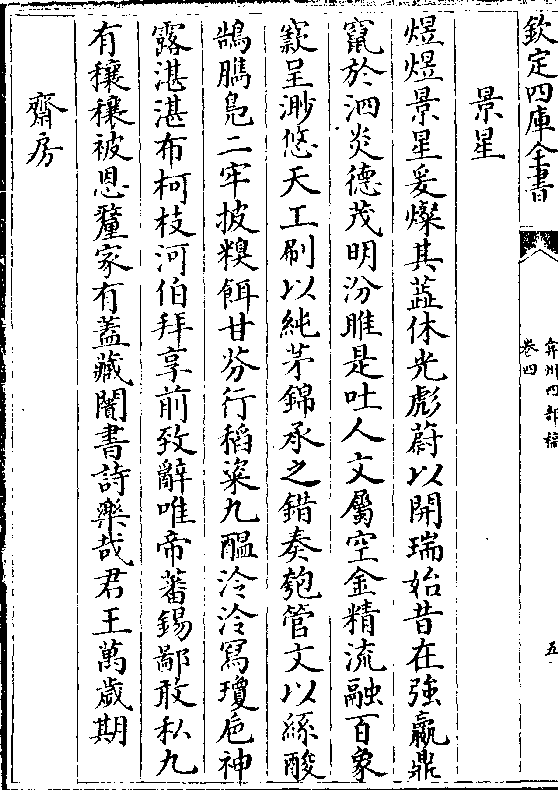 欽定四庫全書
弇州四部稿
卷四
五
景星
煜煜景星爰燦其藍休光彪蔚以開瑞始昔在強嬴鼎
竄於泗炎德茂明汾脽是吐人文屬空金精流融百象
窾呈渺悠天工刷以純茅錦承之錯奏匏管文以絲酸
鵠臇鳧二牢披糗餌甘芬行稻粢九醖泠泠寫瓊卮神
露湛湛布柯枝河伯拜享前致辭唯帝蕃錫鄙敢私九
有穰穰被恩釐家有蓋藏闇書詩樂哉君王萬歲期
齋房